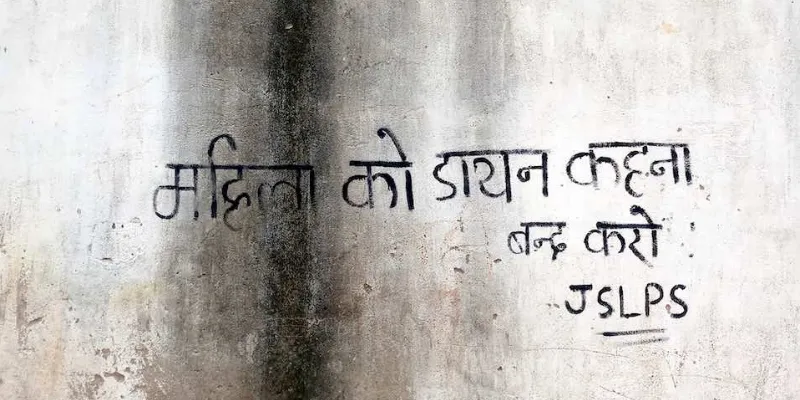 महिला को डायन कहना
बन्द करो :
JSLPS